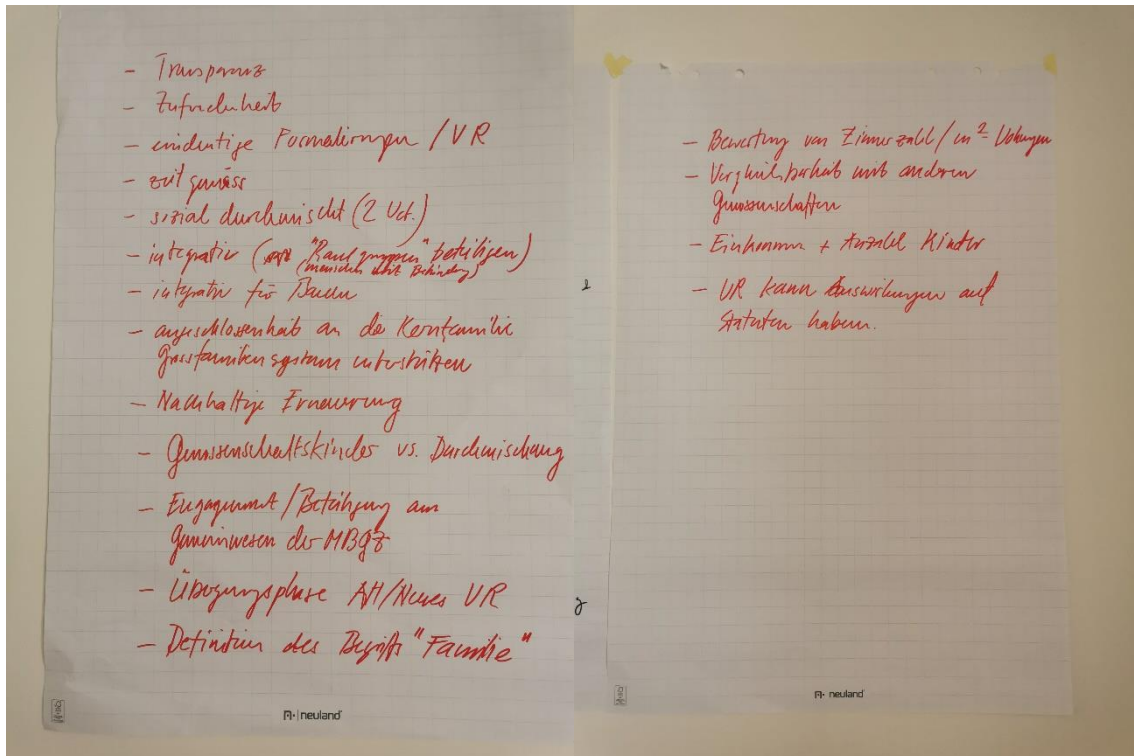 - Transparenz
- Zufriedenheit
- eindeutige Formulierungen / VR
- zeitgemäss
- sozial durchmischt (2 Vct.)
- integrativ ("Randgruppen" beteiligen)
(menschen mit Behinderung)
- integrativ für
- angeschlossenheit an die Kernfamilie
Grossfamiliensystem unterstützen
- Nachhaltige Erneuerung
- Genossenschaftskinder vs. Durchmischung
- Engagement / Beteiligung am
Gemeinwesen der MBGZ
- Übergangsphase Alt/Neues VR
- Definition des Begriffs "Familie"
neuland
- Bewertung von Zimmerzahl / m²-
- Vergleichbarkeit mit anderen
Genossenschaften
- Einkommen + Anzahl Kinder
- VR kann Auswirkungen auf
Statuten haben.
neuland